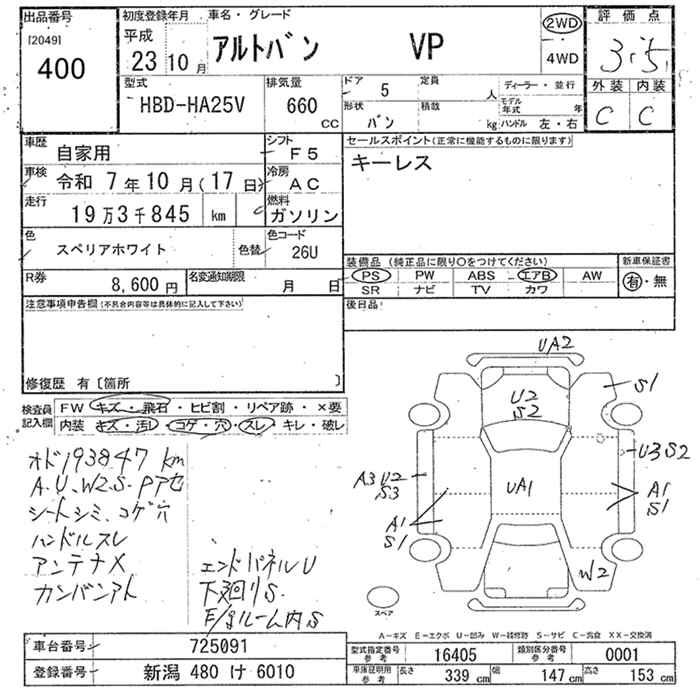 出品番号
[2049]
400
初度登録年月
平成
23 10 月
車名・グレード
アルトバン VP
2WD
4WD
評価点
3.5
外装 内装
C C
型式
HBD-HA25V
排気量
660
cc
ドア 5
定員 人
形状 バン
積載 kg
ディーラー・並行
モデル年式 年
ハンドル 左・右
車歴
自家用
シフト
F5
車検
令和 7年10月(17日)
冷房
AC
走行
19万3千845 km
燃料
ガソリン
色
スペリアホワイト
色替
色コード
26U
R券
8,600 円
名変通知期限 月 日
セールスポイント(正常に機能するものに限ります)
キーレス
装備品(純正品に限り○をつけてください)
PS PW ABS エアB AW
SR ナビ TV カワ
新車保証書
有・無
後日品
注意事項申告欄(不具合内容等は具体的に記入して下さい)
修復歴 有〔箇所 〕
検査員記入欄
FW キズ・飛石・ヒビ割・リペア跡・×要
内装 キズ・汚レ・コゲ・穴・スレ・キレ・破レ
オド193847 km
A.U.W2.S.Pアセ
シートシミ.コゲ穴
ハンドルスレ
アンテナX
カンバンアト
エンドパネルU
下廻りS.
E/gルーム内S
UA2
U2
S2
S1
U3 S2
A3 U2
S3
UA1
A1
S1
A1
S1
W2
スペア
A-キズ E-エクボ U-凹み W-補修跡 S-サビ C-腐食 XX-交換済
車台番号 725091
登録番号 新潟 480 け 6010
型式指定番号 参考 16405
類別区分番号 参考 0001
車庫証明用 参考 長さ 339 cm 幅 147 cm 高さ 153 cm